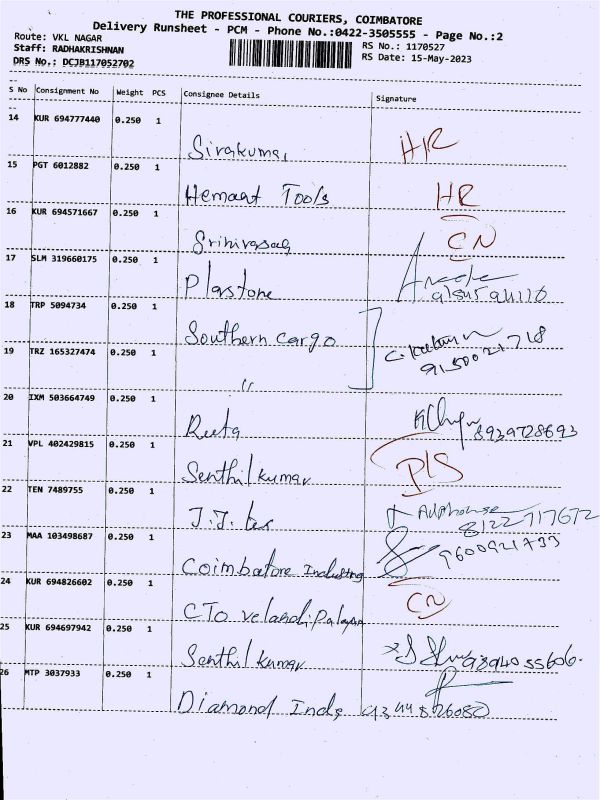 THE PROFESSIONAL COURIERS, COIMBATORE
Delivery Runsheet - PCM - Phone No.:0422-3505555 - Page No.:2
Route: VKL NAGAR
Staff: RADHAKRISHNAN
DRS No.: DCJB117052702
RS No.: 1170527
RS Date: 15-May-2023
S No Consignment No Weight PCS Consignee Details Signature
14 KUR 694777440 0.250 1
Sivakumar HR
15 PGT 6012882 0.250 1
Hemaat Tools HR
16 KUR 694571667 0.250 1
Srinivasag CN
17 SLM 319660175 0.250 1
Plastone
18 TRP 5094734 0.250 1
Southern cargo
9150021718
19 TRZ 165327474 0.250 1
"
20 IXM 503664749 0.250 1
Reeta 8939728693
21 VPL 402429815 0.250 1
Senthilkumar P/S
22 TEN 7489755 0.250 1
J.J. tex Alphonse
8122717672
23 MAA 103498687 0.250 1
Coimbatore Industing 9600921733
24 KUR 694826602 0.250 1
CTO velandipalayam CN
25 KUR 694697942 0.250 1
Senthilkumar 9894055606.
26 MTP 3037933 0.250 1
Diamond Inds 9344826080